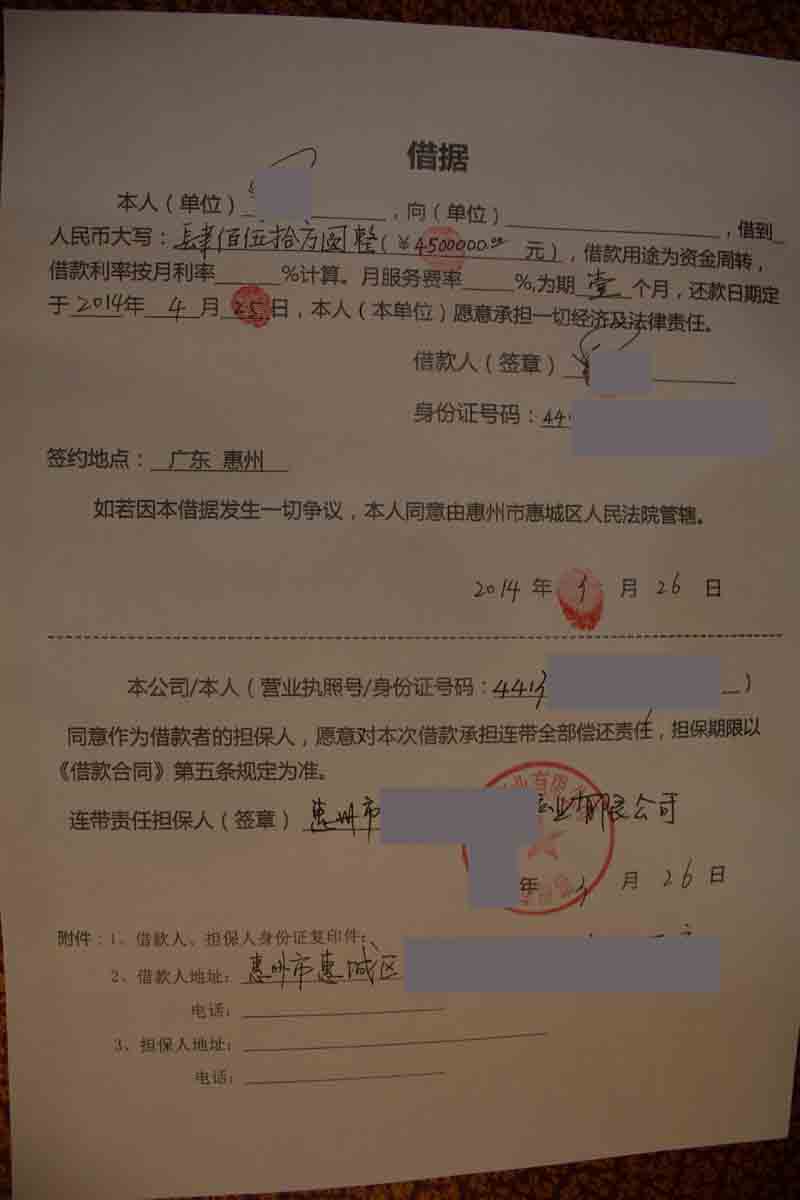 借据
本人（单位），向（单位），借到
人民币大写：肆佰伍拾万圆整（￥4500000.00元），借款用途为资金周转，
借款利率按月利率%计算。月服务费率%,为期壹个月，还款日期定
于2014年4月25日，本人（本单位）愿意承担一切经济及法律责任。
借款人（签章）
身份证号码：44
签约地点：广东 惠州
如若因本借据发生一切争议，本人同意由惠州市惠城区人民法院管辖。
2014年3月26日
本公司/本人（营业执照号/身份证号码：4413）
同意作为借款者的担保人，愿意对本次借款承担连带全部偿还责任，担保期限以
《借款合同》第五条规定为准。
连带责任担保人（签章）惠州市业有限公司
业有限
年3月26日
附件：1、借款人、担保人身份证复印件；
2、借款人地址：惠州市惠城区
电话：
3、担保人地址：
电话：